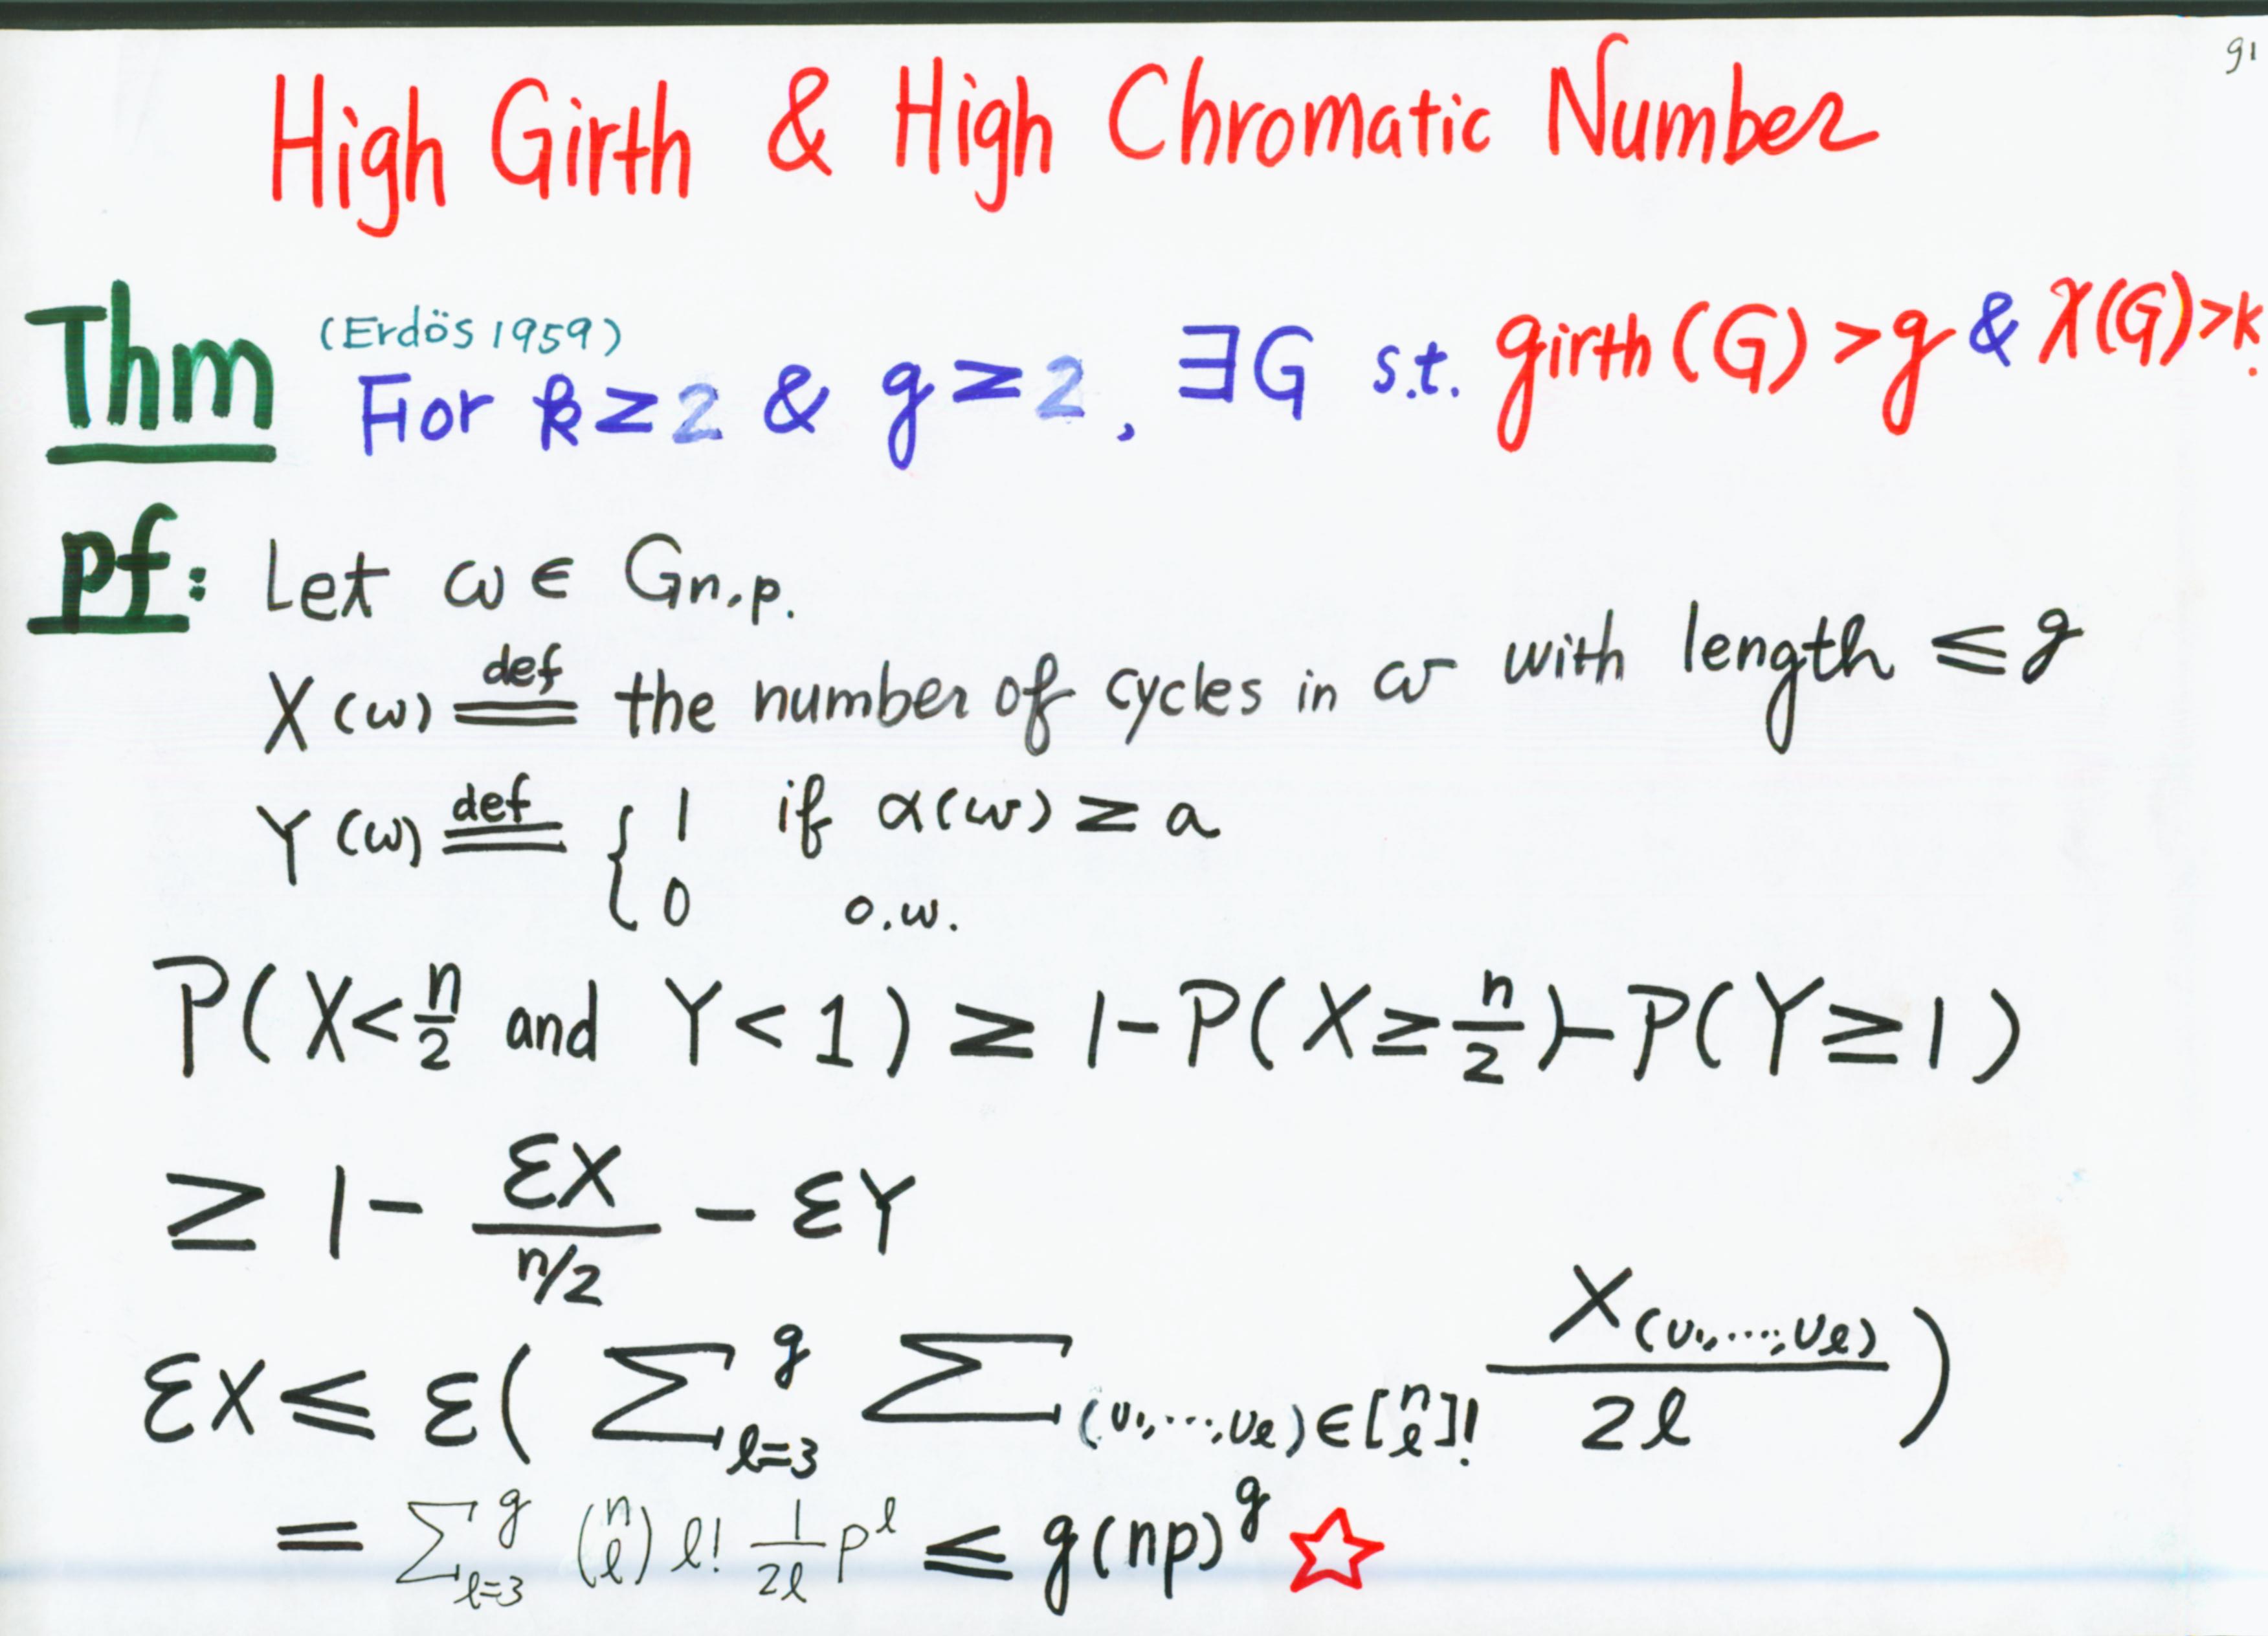 91
High Girth & High Chromatic Number
Thm (Erdös 1959)
For k ≥ 2 & g ≥ 2, ∃G s.t. girth(G) > g & χ(G) > k.
pf: Let ω ∈ Gn,p.
X(ω) def== the number of cycles in ω with length ≤ g
Y(ω) def== { 1 if α(ω) ≥ a
0 o.w.
P(X < n/2 and Y < 1) ≥ 1 - P(X ≥ n/2) - P(Y ≥ 1)
≥ 1 - εX/(n/2) - εY
εX ≤ ε( ∑_{l=3}^{g} ∑_{(v₁,...,v_l)∈[n l]!} X_{(v₁,...,v_l)}/2l )
= ∑_{l=3}^{g} (n l) l! 1/2l p^l ≤ g(np)^g ☆